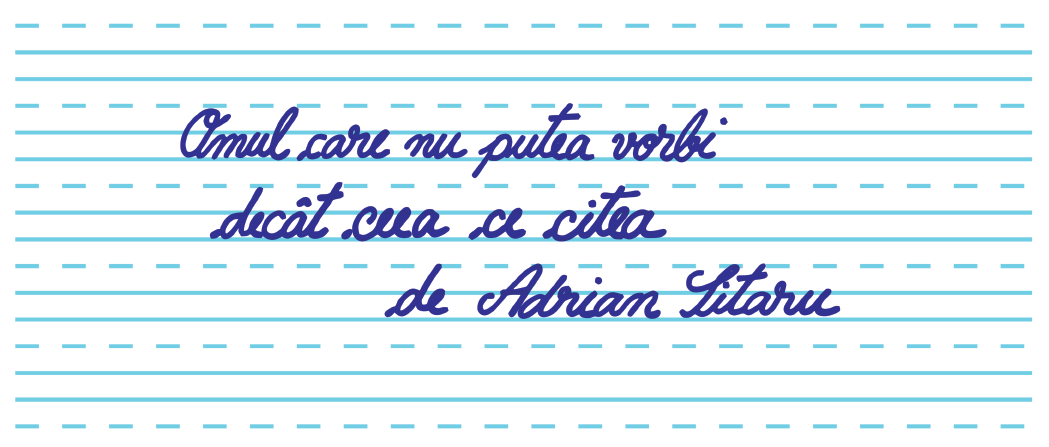 Omul care nu putea vorbi
decât ceea ce citea
de Adrian Sitaru